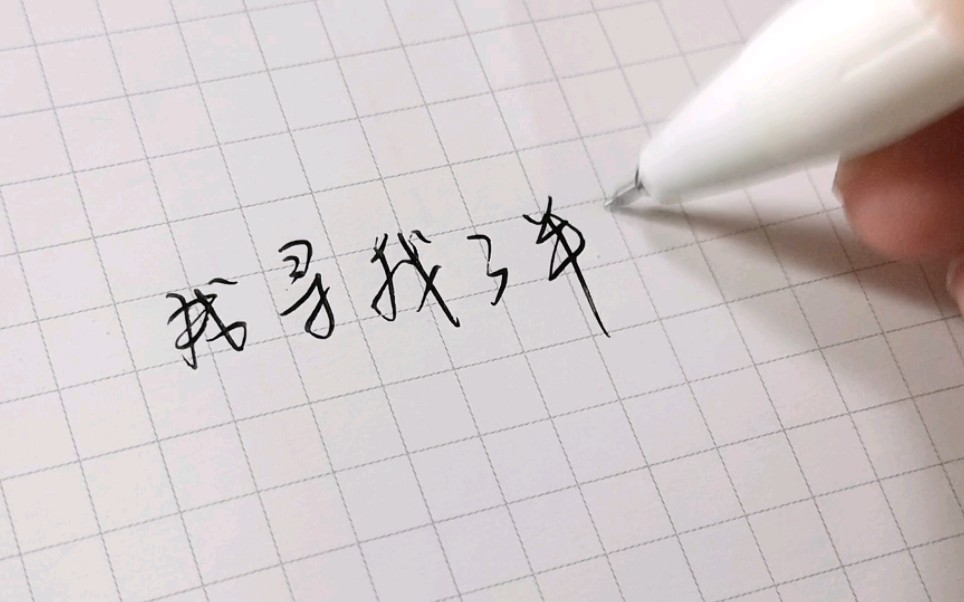 我寻找了半